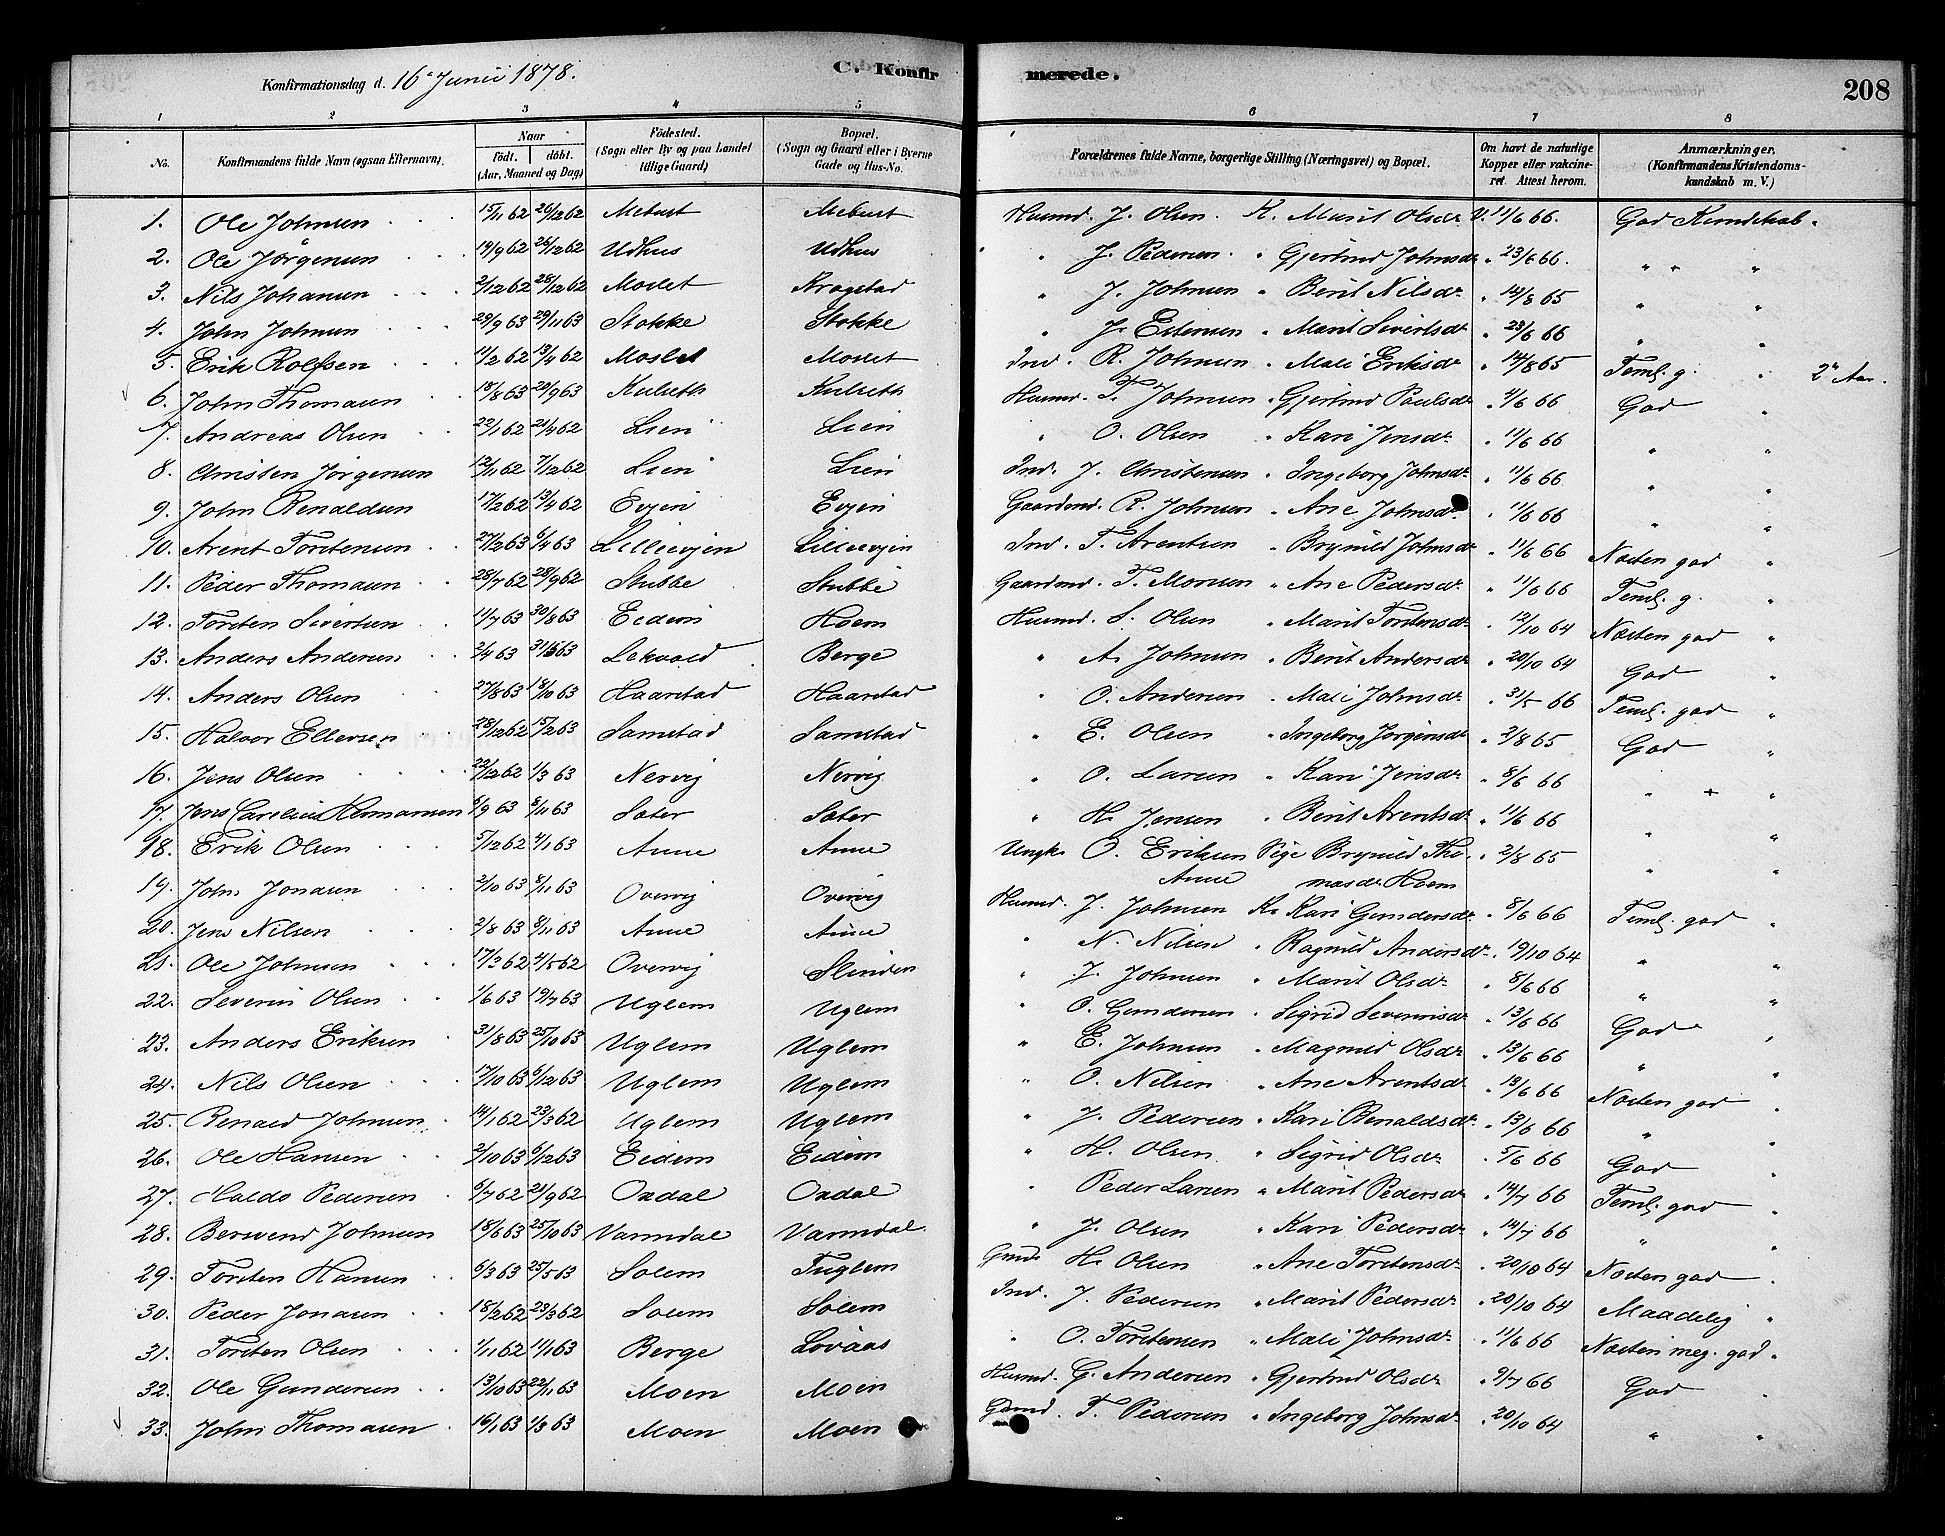 Konfirmationsdag d. 16de Junii 1878.
C. Konfirmerede.
208
1 2 3 4 5 6 7 8
No.
Konfirmandens fulde Navn (ogsaa Efternavn).
Naar
födt. döbt.
(Aar, Maaned og Dag)
Födested. (Sogn eller By og paa Landet tillige Gaard)
Bopæl. (Sogn og Gaard eller i Byerne Gade og Hus-No.
Forældrenes fulde Navne, borgerlige Stilling (Næringsvei) og Bopæl.
Om havt de naturlige Kopper eller vakcineret. Attest herom.
Anmærkninger. (Konfirmandens Kristendomskundskab m. V.)
1. Ole Johnsen 15/11 62 26/12 62 Mebust Mebust Husmd. J. Olsen K. Marit Olsdr V. 11/6 66. God Kundskab.
2. Ole Jörgensen 14/9 62 26/12 62 Udhus Udhus " J. Pedersen " Gjertrud Johnsdr " 23/6 66. " "
3. Nils Johansen 2/12 62 28/12 62 Moslet Kragstad " J. Johnsen " Berit Nilsdr " 14/8 65 " "
4. John Johnsen 29/9 63 29/11 63 Stokke Stokke " J. Estensen " Marit Sivertsdr " 23/6 66 " "
5. Erik Rolfsen 11/2 62 13/4 62 Moslet Moslet Ind. R. Johnsen " Mali Eriksdr " 14/8 65 Teml. g. " 2de Aar.
6. John Thomasen 18/8 63 20/9 63 Kulseth Kulseth Husmd. T. Johnsen " Gjertrud Paulsdr " 4/6 66 God "
7. Andreas Olsen 22/1 62 21/4 62 Lien Lien " O. Olsen " Kari Jensdr " 11/6 66 " "
8. Christen Jörgensen 12/11 62 7/12 62 Lien Lien Ind. J. Christensen " Ingeborg Johnsdr " 11/6 66 " "
9. John Renaldsen 17/2 62 13/4 62 Evjen Evjen Gaardmd. R. Johnsen " Ane Johnsdr " 11/6 66 " "
10. Arent Torstensen 27/2 63 6/4 63 Lillievjen Lillievjen Ind. T. Arentsen " Brynild Johnsdr " 11/6 66 Næsten god "
11. Peder Thomasen 28/7 62 28/9 62 Stubbe Stubbe Gaardmd. T. Monsen " Ane Pedersdr " 11/6 66 Teml. g. "
12. Torsten Sivertsen 11/7 63 30/8 63 Eidem Hoem Husmd. S. Olsen " Marit Torstensdr " 12/10 64 Næsten god "
13. Anders Andersen 2/4 63 31/5 63 Lekvold Berge " A. Johnsen " Berit Andersdr " 20/10 64 God "
14. Anders Olsen 27/8 63 18/10 63 Haarstad Haarstad " O. Andersen " Mali Johnsdr " 31/5 66 Teml. god "
15. Halvor Ellevsen 28/12 62 15/2 63 Samstad Samstad " E. Olsen " Ingeborg Jörgensdr " 2/8 65 God "
16. Jens Olsen 22/12 62 1/3 63 Nervig Nervig " O. Larsen " Kari Jensdr " 8/6 66 " + "
17. Jens Carelius Hermansen 6/9 63 8/11 63 Sæter Sæter " H. Jensen " Berit Arentsdr " 11/6 66 " "
18. Erik Olsen 5/12 62 4/1 63 Aune Aune Ungk. O. Eriksen Aune Pige Brynild Thomasdr Hoem " 2/8 65 " "
19. John Jonasen 2/10 63 8/11 63 Overvig Overvig Husmd. J. Johnsen K. Kari Gundersdr " 8/6 66 Teml. god "
20. Jens Nilsen 2/8 63 8/11 63 Aune Aune " N. Nilsen " Ragnild Andersdr " 19/10 64 " "
21. Ole Johnsen 17/3 62 4/5 62 Overvig Slinden " J. Johnsen " Marit Olsdr " 8/6 66 " "
22. Severin Olsen 1/6 63 19/7 63 Uglem Uglem " O. Gundersen " Sigrid Severinsdr " 13/6 66 God "
23. Anders Eriksen 31/8 63 25/10 63 Uglem Uglem " E. Johnsen " Magnild Olsdr " 13/6 66 " "
24. Nils Olsen 17/10 63 6/12 63 Uglem Uglem " O. Nilsen " Ane Arentsdr " 13/6 66 Næsten god "
25. Renald Johnsen 14/1 62 23/3 62 Uglem Uglem " J. Pedersen " Kari Renaldsdr " 13/6 66 " "
26. Ole Hansen 2/10 63 6/12 63 Eidem Eidem " H. Olsen " Sigrid Olsdr " 5/6 66 God "
27. Haldo Pedersen 6/7 62 21/9 62 Oxdal Oxdal " Peder Larsen " Marit Pedersdr " 14/7 66 Teml. god "
28. Bersvend Johnsen 18/6 63 25/10 63 Varmdal Varmdal " J. Olsen " Kari Pedersdr " 14/7 66 " "
29. Torsten Hansen 6/3 63 25/5 63 Solem Fuglem Gmd. H. Olsen " Ane Torstensdr " 20/10 64 Næsten god "
30. Peder Jonasen 18/2 62 23/3 62 Solem Solem Ind. J. Pedersen " Marit Pedersdr " 20/10 64 Maadelig "
31. Torsten Olsen 1/11 62 1/1 63 Berge Lovaas " O. Torstensen " Mali Johnsdr " 11/6 66 Næsten meg. god "
32. Ole Gundersen 13/10 63 22/11 63 Moen Moen Husmd. G. Andersen " Gjertrud Olsdr " 9/7 66 God "
33. John Thomasen 16/1 63 1/3 63 Moen Moen Gamd. T. Pedersen " Ingeborg Johnsdr " 20/10 64 " "